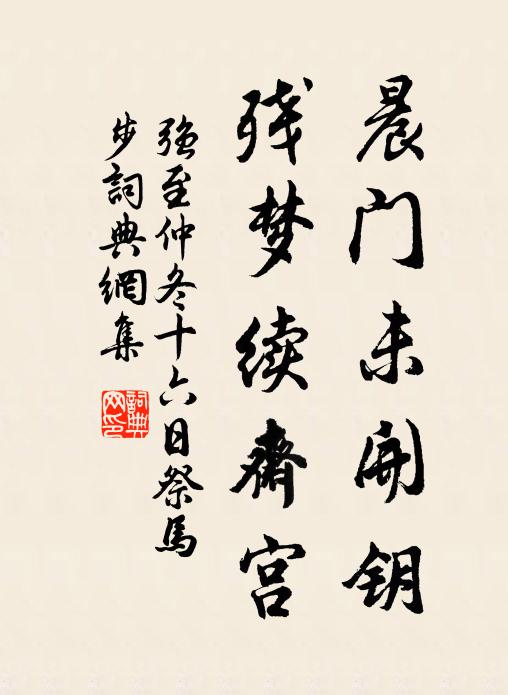 晨门未开钥
残梦续齋宫
强至仲冬十六日祭馬
步詞典網集
詞典
网印